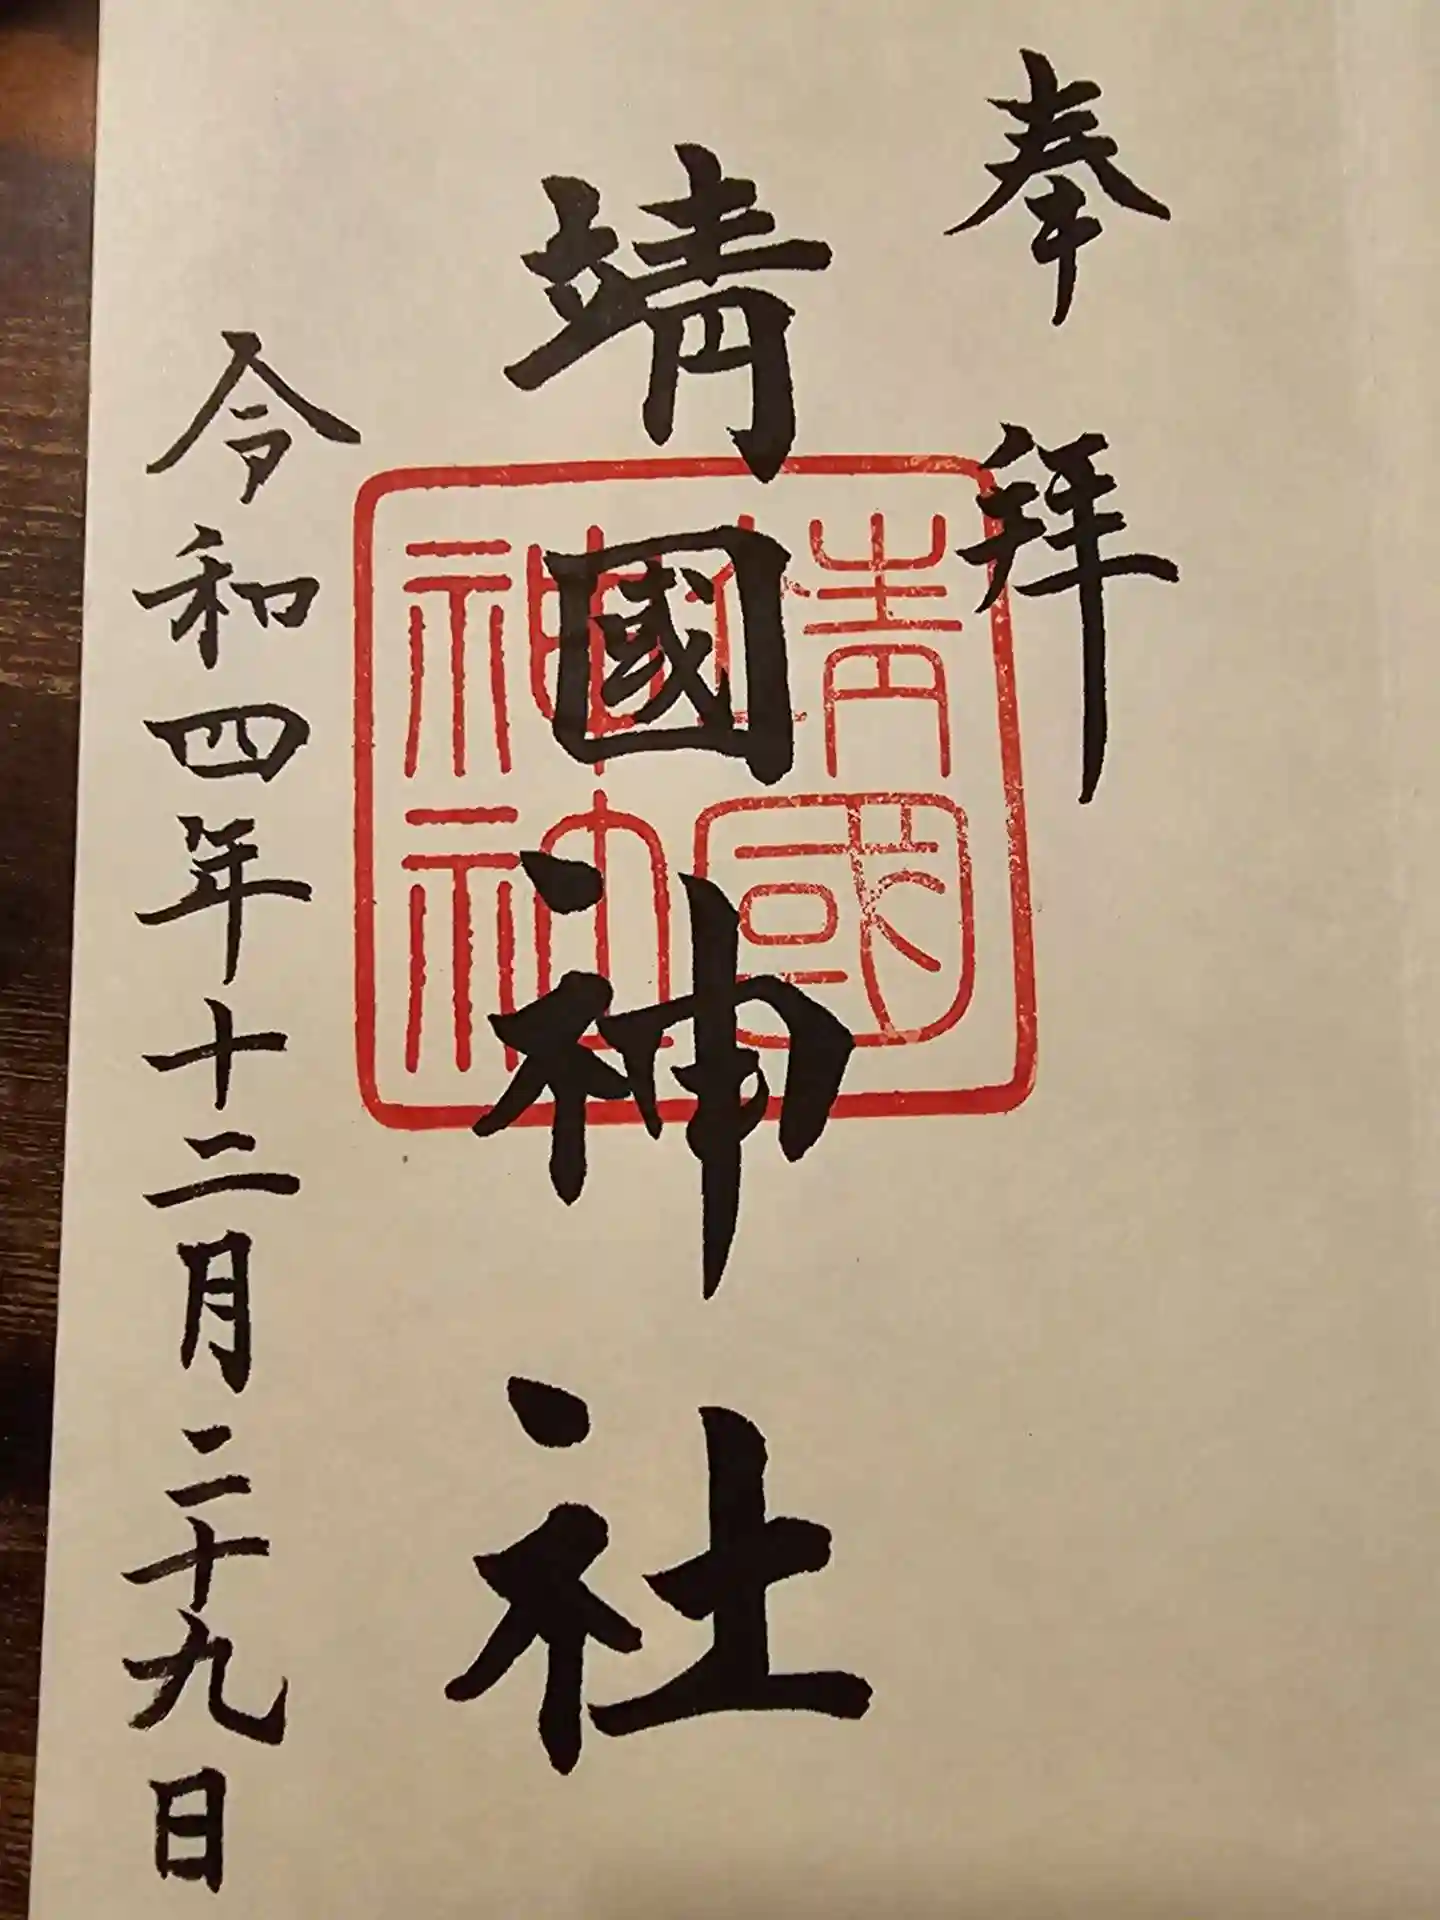 奉拜
靖國神社
靖國
神社
令和四年十二月二十九日